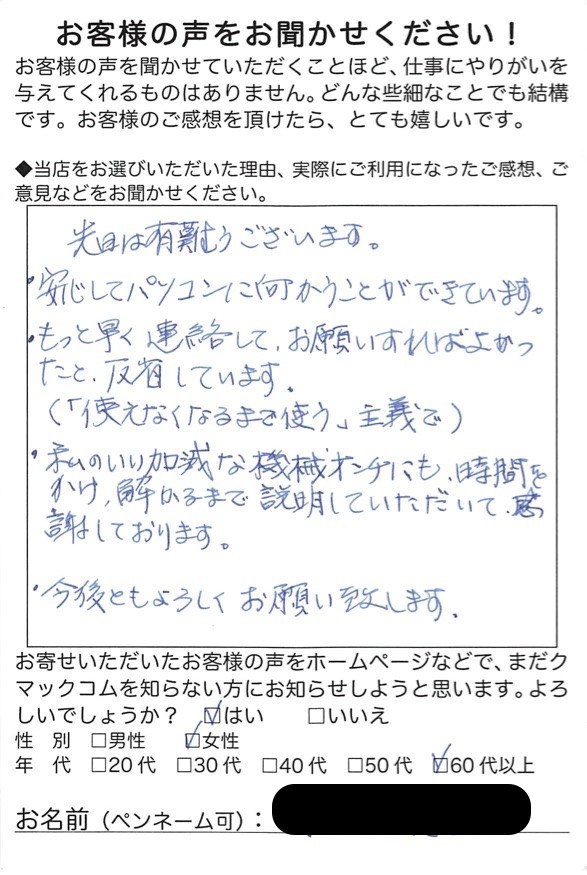 お客様の声をお聞かせください！
お客様の声を聞かせていただくことほど、仕事にやりがいを
与えてくれるものはありません。どんな些細なことでも結構
です。お客様のご感想を頂けたら、とても嬉しいです。
◆当店をお選びいただいた理由、実際にご利用になったご感想、ご
意見などをお聞かせください。
先日は有難うございます。
・安心してパソコンに向かうことができています。
・もっと早く連絡して、お願いすればよかっ
たと、反省しています。
（「使えなくなるまで使う」主義で）
・私のいい加減な機械オンチにも、時間を
かけ、解かるまで説明していただいて、感
謝しております。
・今後ともよろしくお願い致します。
お寄せいただいたお客様の声をホームページなどで、まだク
マックコムを知らない方にお知らせしようと思います。よろ
しいでしょうか？ ☑はい □いいえ
性 別 □男性 ☑女性
年 代 □20代 □30代 □40代 □50代 ☑60代以上
お名前（ペンネーム可）：